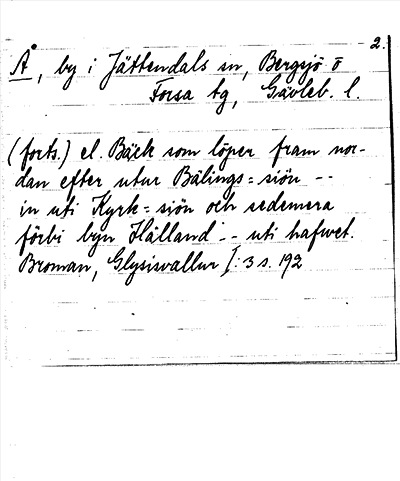 2.
Å, by i Jättendals sn, Bergsjö o
Forsa tg, Gävleb. l.
(forts.) el. Bäck som löper fram nor-
dan efter utur Bälings=siön --
in uti Kyrk=siön och sedemera
förbi byn Hålland -- uti hafwet.
Broman, Glysisvallur I:3 s. 192